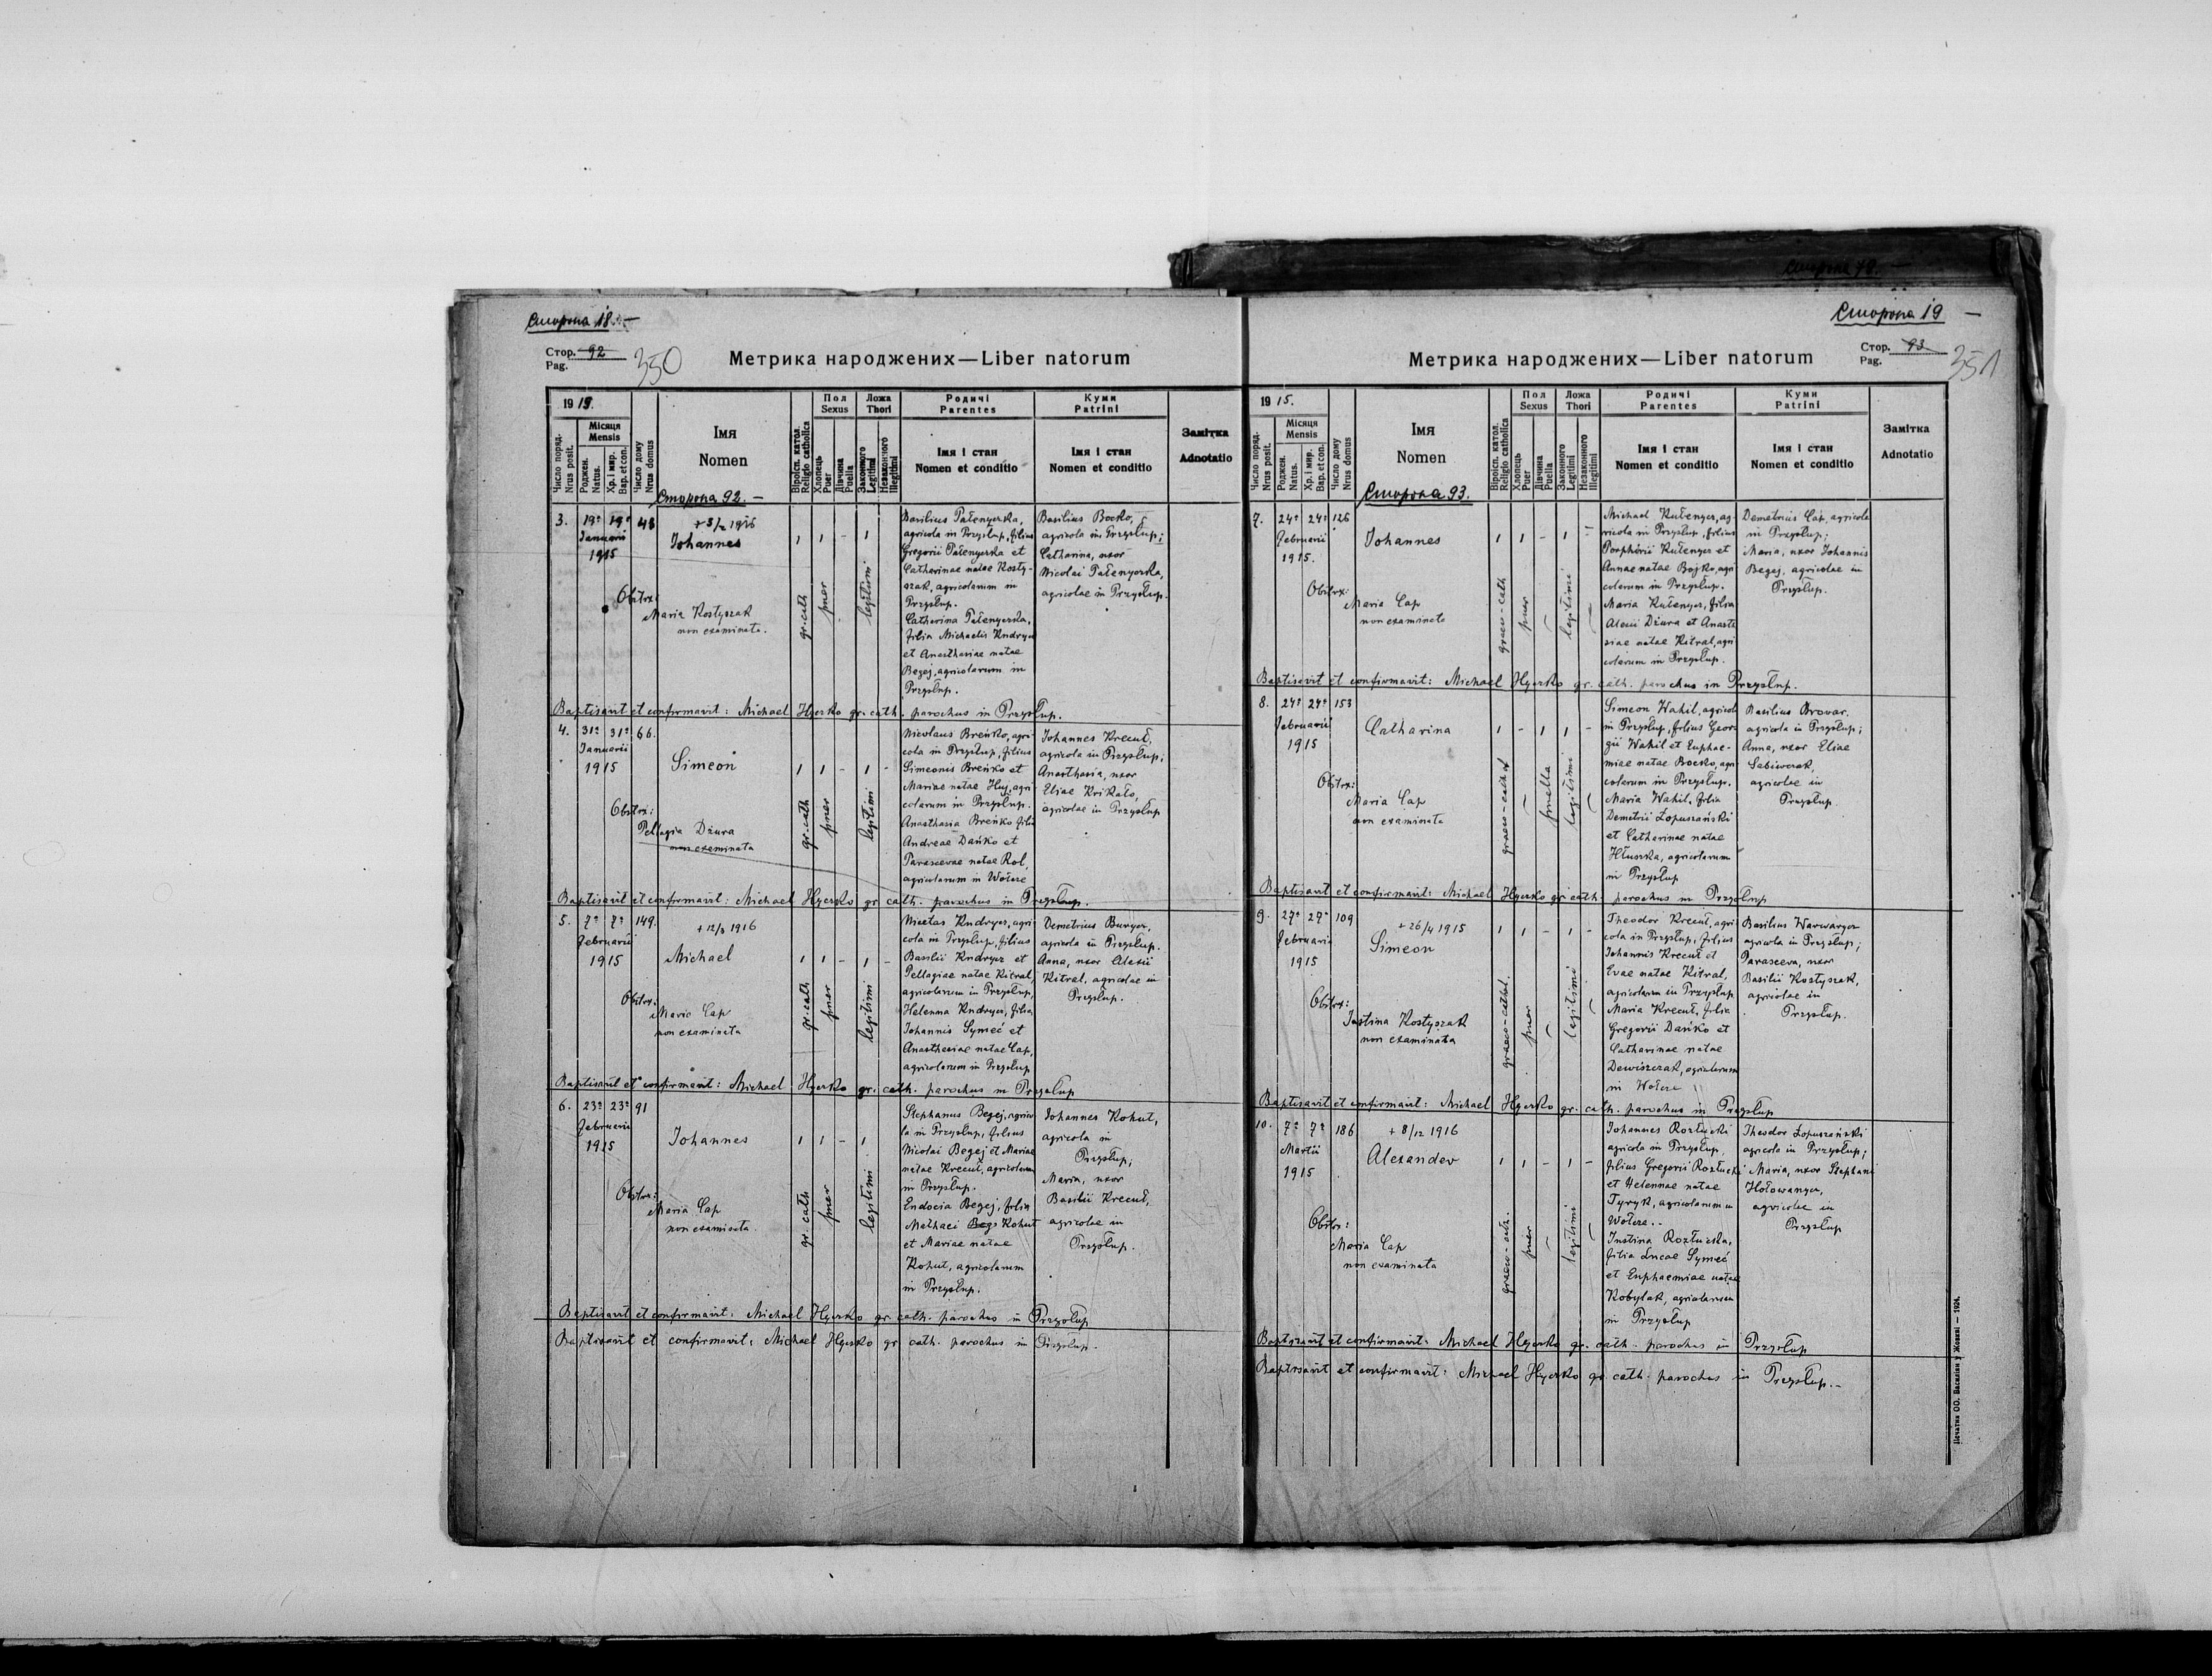 Сторона 18. —
Стор. 92
Pag.
350
Метрика народжених—Liber natorum
1915.
Число поряд.
Nrus posit.
Місяця
Mensis
Роджен.
Natus.
Хр. і мир.
Bap. et con.
Число дому
Nrus domus
Імя
Nomen
Віросп. катол.
Religio catholica
Пол
Sexus
Хлопець
Puer
Дівчина
Puella
Ложа
Thori
Законного
Legitimi
Незаконного
Illegitimi
Родичі
Parentes
Імя і стан
Nomen et conditio
Куми
Patrini
Імя і стан
Nomen et conditio
Замітка
Adnotatio
Сторона 92. —
3. 19a 19a 43
Januarii
1915
Johannes
Obstrx:
Maria Kostyszak
non examinata.
gr. cath
puer
legitimi
Basilius Pałenyczka,
agricola in Przysłup, filius
Gregorii Pałenyczka et
Catharinae natae Kosty-
szak, agricolarum in
Przysłup.
Catharina Pałenyczka,
filia Michaelis Kndrycz
et Anasthasiae natae
Begej, agricolarum in
Przysłup.
Basilius Bocko,
agricola in Przysłup;
Catharina, uxor
Nicolai Pałenyczka,
agricolae in Przysłup.
Baptisavit et confirmavit: Michael Hycrko gr. cath. parochus in Przysłup.
4. 31a 31a 66.
Januarii
1915
Simeon
Obstrx:
Pellagia Dżura
non examinata
gr. cath
puer
legitimi
Nicolaus Breńko, agri-
cola in Przysłup, filius
Simeonis Breńko et
Mariae natae Huj, agri-
colarum in Przysłup.
Anasthasia Breńko filia
Andreae Dańko et
Parascevae natae Rol,
agricolarum in Wołcze
Johannes Krecuł,
agricola in Przysłup;
Anasthasia, uxor
Eliae Krikało,
agricolae in Przysłup
Baptisavit et confirmavit: Michael Hycrko gr. cath. parochus in Przysłup.
5. 7a 7a 149.
Februarii
1915
+ 12/3 1916
Michael
Obstrx:
Maria Cap
non examinata
gr. cath
puer
legitimi
Nicetas Kndrycz, agri-
cola in Przysłup, filius
Basilii Kndrycz et
Pellagiae natae Kitral,
agricolarum in Przysłup,
Helenna Kndrycz, filia
Johannis Symeć et
Anasthasiae natae Cap,
agricolarum in Przysłup
Demetrius Bunycz,
agricola in Przysłup.
Anna, uxor Alexii
Kitral, agricolae in
Przysłup.
Baptisavit et confirmavit: Michael Hycrko gr. cath. parochus in Przysłup
6. 23a 23a 91
Februarii
1915
Johannes
Obstrx:
Maria Cap
non examinata.
gr. cath
puer
legitimi
Stephanus Begej, agrico
la in Przysłup, filius
Nicolai Begej et Mariae
natae Krecuł, agricolarum
in Przysłup.
Eudocia Begej, filia
Mathaei Kohut
et Mariae natae
Kohut, agricolarum
in Przysłup.
Johannes Kohut,
agricola in
Przysłup;
Maria, uxor
Basilii Krecuł,
agricolae in
Przysłup.
Baptisavit et confirmavit: Michael Hycrko gr. cath. parochus in Przysłup
Baptisavit et confirmavit: Michael Hycrko gr cath. parochus in Przysłup.
Сторона 19 —
Стор. 93
Pag.
351
Метрика народжених—Liber natorum
1915.
Число поряд.
Nrus posit.
Місяця
Mensis
Роджен.
Natus.
Хр. і мир.
Bap. et con.
Число дому
Nrus domus
Імя
Nomen
Віросп. катол.
Religio catholica
Пол
Sexus
Хлопець
Puer
Дівчина
Puella
Ложа
Thori
Законного
Legitimi
Незаконного
Illegitimi
Родичі
Parentes
Імя і стан
Nomen et conditio
Куми
Patrini
Імя і стан
Nomen et conditio
Замітка
Adnotatio
Сторона 93.
7. 24a 24a 126
Februarii
1915.
Johannes
Obstrx:
Maria Cap
non examinata
graeco-cath
puer
legitimi
Michael Kułenycz, ag-
ricola in Przysłup, filius
Porphirii Kułenycz et
Annae natae Bojko, agri
colarum in Przysłup.
Maria Kułenycz, filia
Alexii Dżura et Anasta
siae natae Kitral, agri
colarum in Przysłup.
Demetrius Cap, agricola
in Przysłup;
Maria, uxor Johannis
Begej, agricolae in
Przysłup.
Baptisavit et confirmavit: Michael Hycrko gr. cath. parochus in Przysłup.
8. 24a 24a 153
Februarii
1915
Catharina
Obstrx:
Maria Cap
non examinata
puella
legitimi
Simeon Wahil, agricola
in Przysłup, filius Geor
gii Wahil et Euphae-
miae natae Bocko, agri
colarum in Przysłup.
Maria Wahil, filia
Demetrii Łopuszański
et Catharinae natae
Hłuszka, agricolarum
in Przysłup
Basilius Browar,
agricola in Przysłup;
Anna, uxor Eliae
Sabiwczak,
agricolae in
Przysłup.
Baptisavit et confirmavit: Michael Hycrko gr cath. parochus in Przysłup
9. 27a 27a 109
Februarii
1915
+ 26/4 1915
Simeon
Obstrx:
Justina Kostyszak
non examinata
graeco-cathol.
puer
legitimi
Theodor Krecuł, agri
cola in Przysłup, filius
Johannis Krecuł et
Evae natae Kitral,
agricolarum in Przysłup
Maria Krecuł, filia
Gregorii Dańko et
Catharinae natae
Dewiszczak, agricolarum
in Wołcze
Basilius Warwarycz
agricola in Przysłup;
Parasceva, uxor
Basilii Kostyszak,
agricolae in
Przysłup.
Baptisavit et confirmavit: Michael Hycrko gr. cath. parochus in Przysłup
10. 7a 7a 186
Martii
1915
+ 8/12 1916
Alexander
Obstr:
Maria Cap
non examinata
graeco-cath.
puer
legitimi
Johannes Rozłucki
agricola in Przysłup,
filius Gregorii Rozłucki
et Helennae natae
Tyryk, agricolarum in
Wołcze..
Justina Rozłucka,
filia Lucae Symeć
et Euphaemiae natae
Kobylak, agricolarum
in Przysłup
Theodor Łopuszański
agricola in Przysłup;
Maria, uxor Stephani
Hołowanycz,
agricolae in
Przysłup
Baptisavit et confirmavit: Michael Hycrko gr. cath. parochus in Przysłup
Baptisavit et confirmavit: Michael Hycrko gr cath. parochus in Przysłup.-
Печатня ОО. Василіян у Жовкві — 1924.